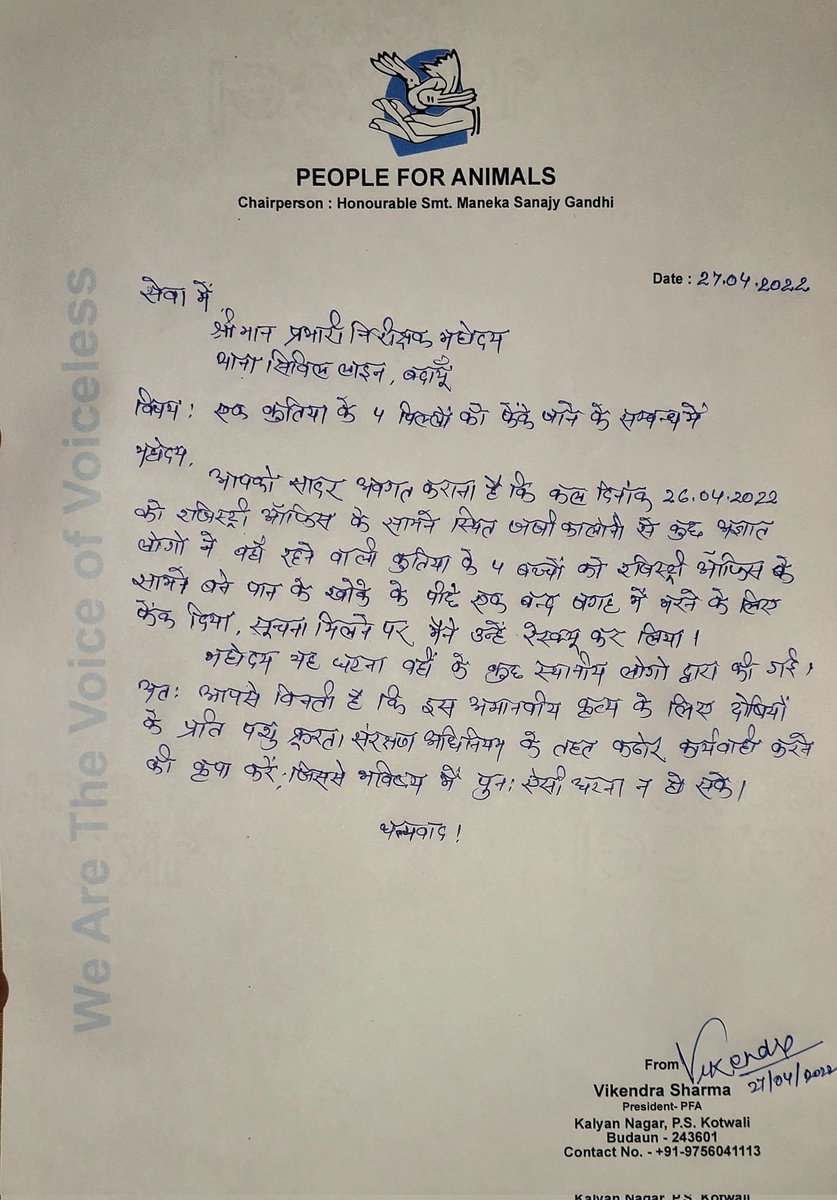 PEOPLE FOR ANIMALS
Chairperson : Honourable Smt. Maneka Sanajy Gandhi
Date : 27.04.2022
सेवा में,
श्रीमान प्रभारी निरीक्षक महोदय
थाना सिविल लाइन, बदायूँ
विषय: एक कुतिया के 4 पिल्लों को फेंके जाने के सम्बन्ध में
महोदय,
आपको सादर अवगत कराना है कि कल दिनांक 26.04.2022
को रजिस्ट्री ऑफिस के सामने स्थित जजी कालोनी से कुछ अज्ञात
लोगों ने वहाँ रहने वाली कुतिया के 4 बच्चों को रजिस्ट्री ऑफिस के
सामने बने पान के खोके के पीछे एक बन्द जगह में मरने के लिए
फेंक दिया, सूचना मिलने पर मैंने उन्हें रेस्क्यू कर लिया।
महोदय यह घटना वहाँ के कुछ स्थानीय लोगो द्वारा की गई।
अतः आपसे विनती है कि इस अमानवीय कृत्य के लिए दोषियों
के प्रति पशु क्रूरता संरक्षण अधिनियम के तहत कठोर कार्यवाही करने
की कृपा करें, जिससे भविष्य में पुनः ऐसी घटना न हो सके।
धन्यवाद!
We Are The Voice of Voiceless
From Vikendra
27/04/2022
Vikendra Sharma
President- PFA
Kalyan Nagar, P.S. Kotwali
Budaun - 243601
Contact No. - +91-9756041113
Kalyan Nagar, P.S. Kotwali